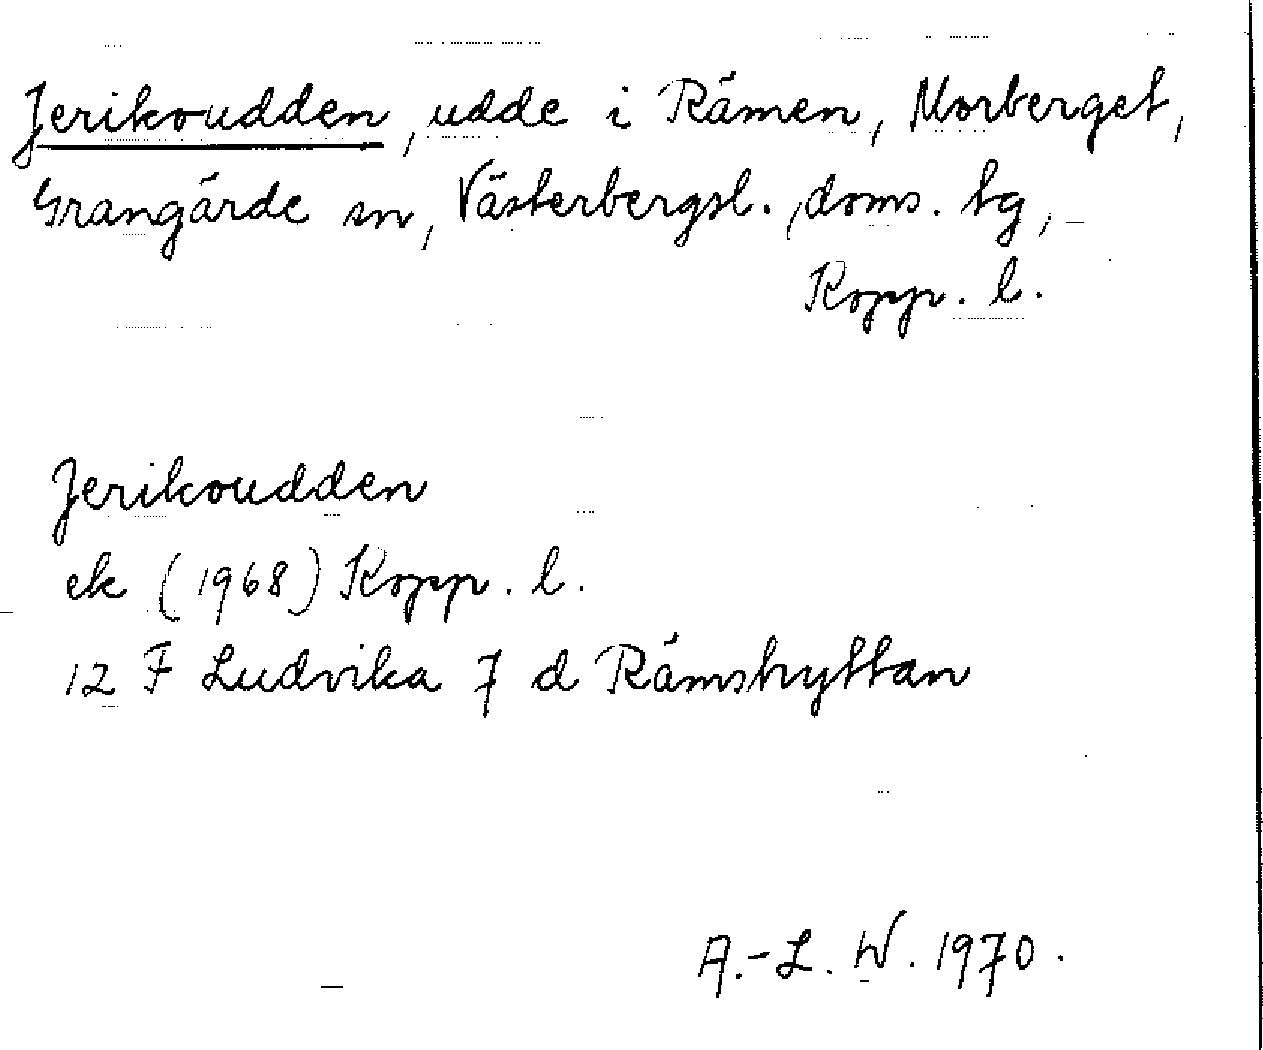 Jerikoudden, udde i Råmen, Morberget,
Grangärde sn, Västerbergsl. doms. tg,
Kopp. l.
Jerikoudden
ek (1968) Kopp. l.
12 F Ludvika 7 d Rämshyttan
A.-L. W. 1970.